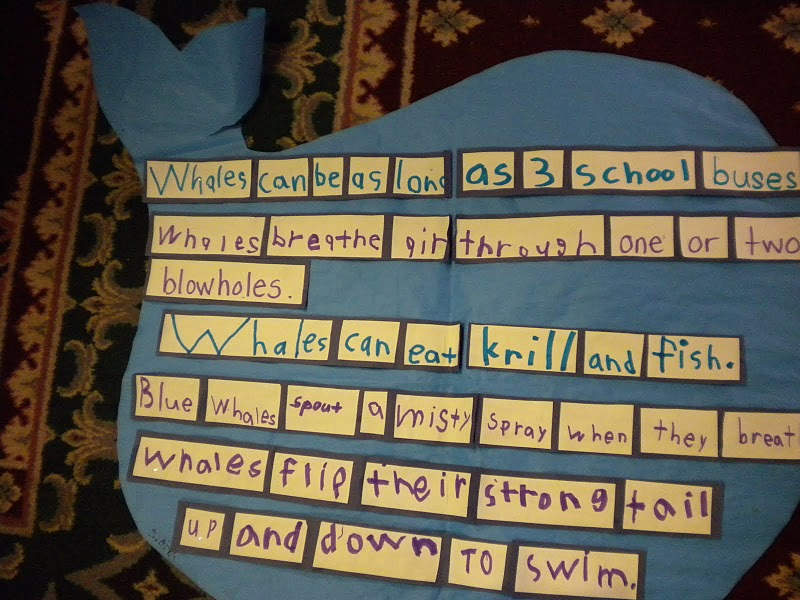 Whales can be as long as 3 school buses
Whales breathe air through one or two
blowholes.
Whales can eat krill and fish.
Blue Whales spout a misty spray when they breat
whales flip their strong tail
up and down TO swim.